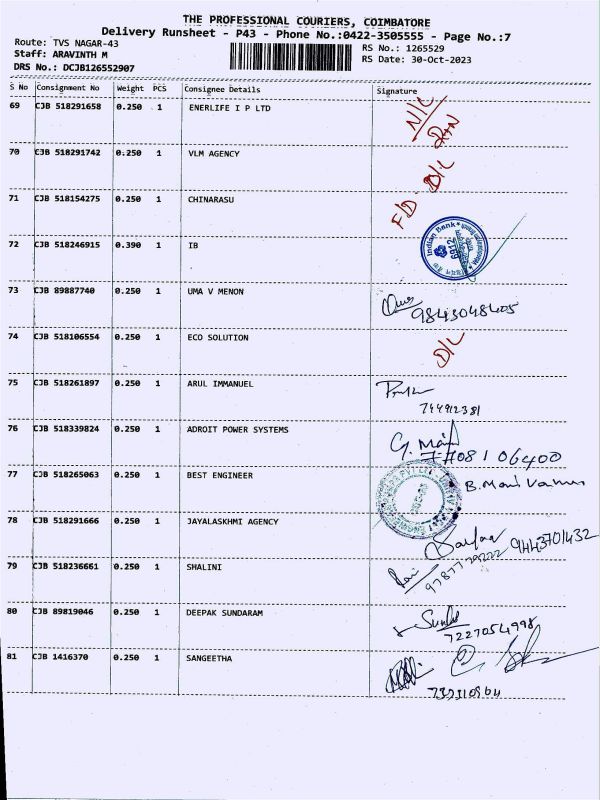 THE PROFESSIONAL COURIERS, COIMBATORE
Delivery Runsheet - P43 - Phone No.:0422-3505555 - Page No.:7
Route: TVS NAGAR-43
Staff: ARAVINTH M
DRS No.: DCJB126552907
RS No.: 1265529
RS Date: 30-Oct-2023
S No Consignment No Weight PCS Consignee Details Signature
69 CJB 518291658 0.250 1 ENERLIFE I P LTD N/C
70 CJB 518291742 0.250 1 VLM AGENCY D/L
71 CJB 518154275 0.250 1 CHINARASU F/D
72 CJB 518246915 0.390 1 IB Indian Bank 6912
73 CJB 89887740 0.250 1 UMA V MENON Uma 9843048405
74 CJB 518106554 0.250 1 ECO SOLUTION D/L
75 CJB 518261897 0.250 1 ARUL IMMANUEL 744912381
76 CJB 518339824 0.250 1 ADROIT POWER SYSTEMS G. Mani 77081 06400
77 CJB 518265063 0.250 1 BEST ENGINEER B.Mani
78 CJB 518291666 0.250 1 JAYALASKHMI AGENCY 9443701432
79 CJB 518236661 0.250 1 SHALINI 9787779222
80 CJB 89819046 0.250 1 DEEPAK SUNDARAM 7227054998
81 CJB 1416370 0.250 1 SANGEETHA